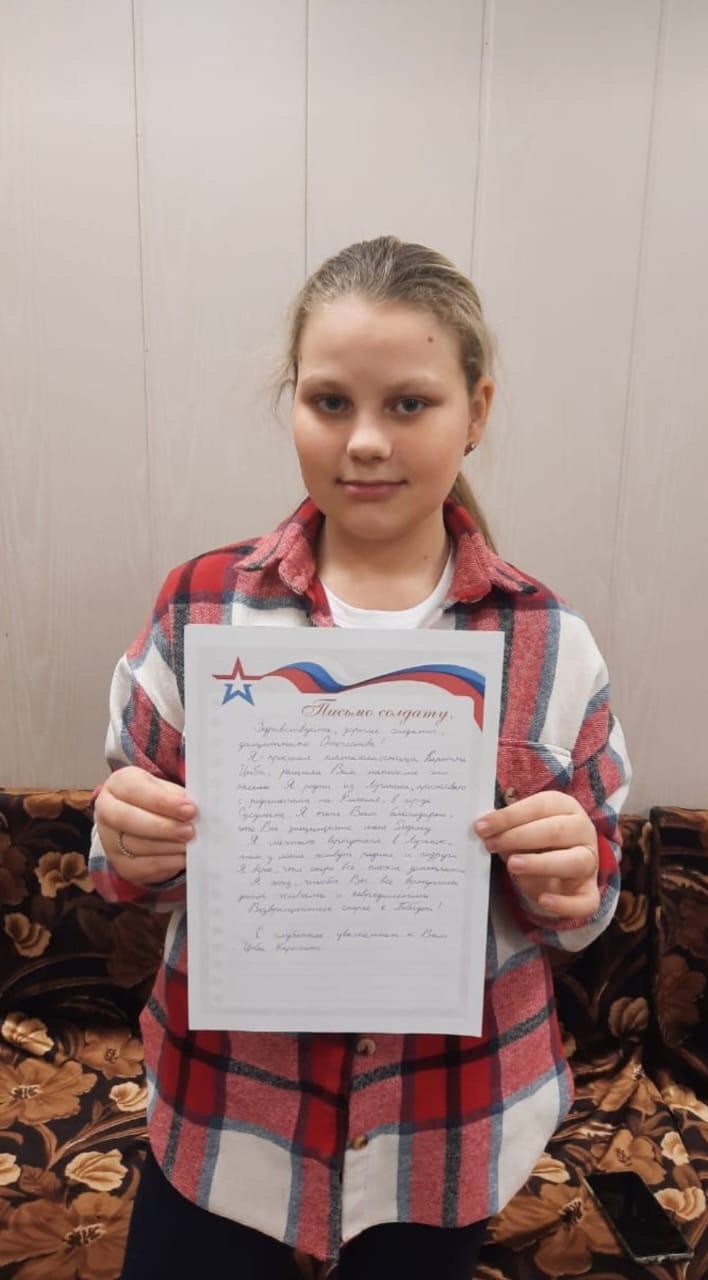 Письмо солдату.
Здравствуйте, дорогие солдаты,
защитники Отечества!
Я - простая пятиклассница
решила Вам написать это
письмо. Я родом из Луганска, проживаю
с родителями на Колыме, в городе
Сусумане. Я очень Вам благодарна,
что Вы защищаете мою Родину.
Я мечтаю вернуться в Луганск,
там у меня живут родные и подруги.
Я верю, что скоро все плохое закончится.
Я хочу, чтобы Вы все вернулись
домой живыми и невредимыми.
Возвращайтесь скорее с Победой!
С глубоким уважением к Вам
Цыба Каролина.